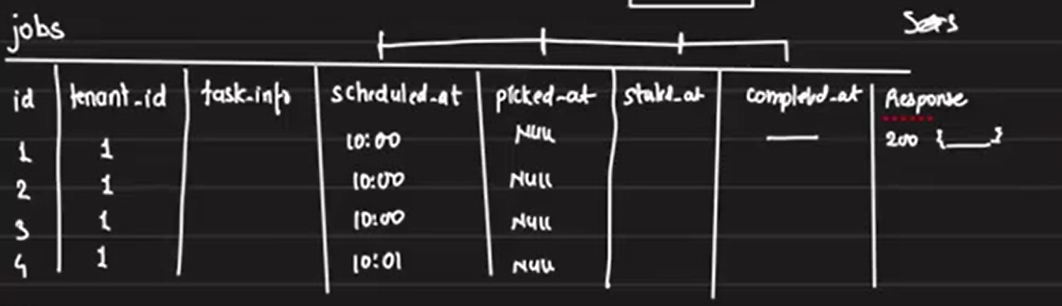 jobs
id tenant_id task_info scheduled_at picked_at completed_at Response
1 1 10:00 NULL 200 { }
2 1 10:00 NULL
3 1 10:00 NULL
4 1 10:01 NULL